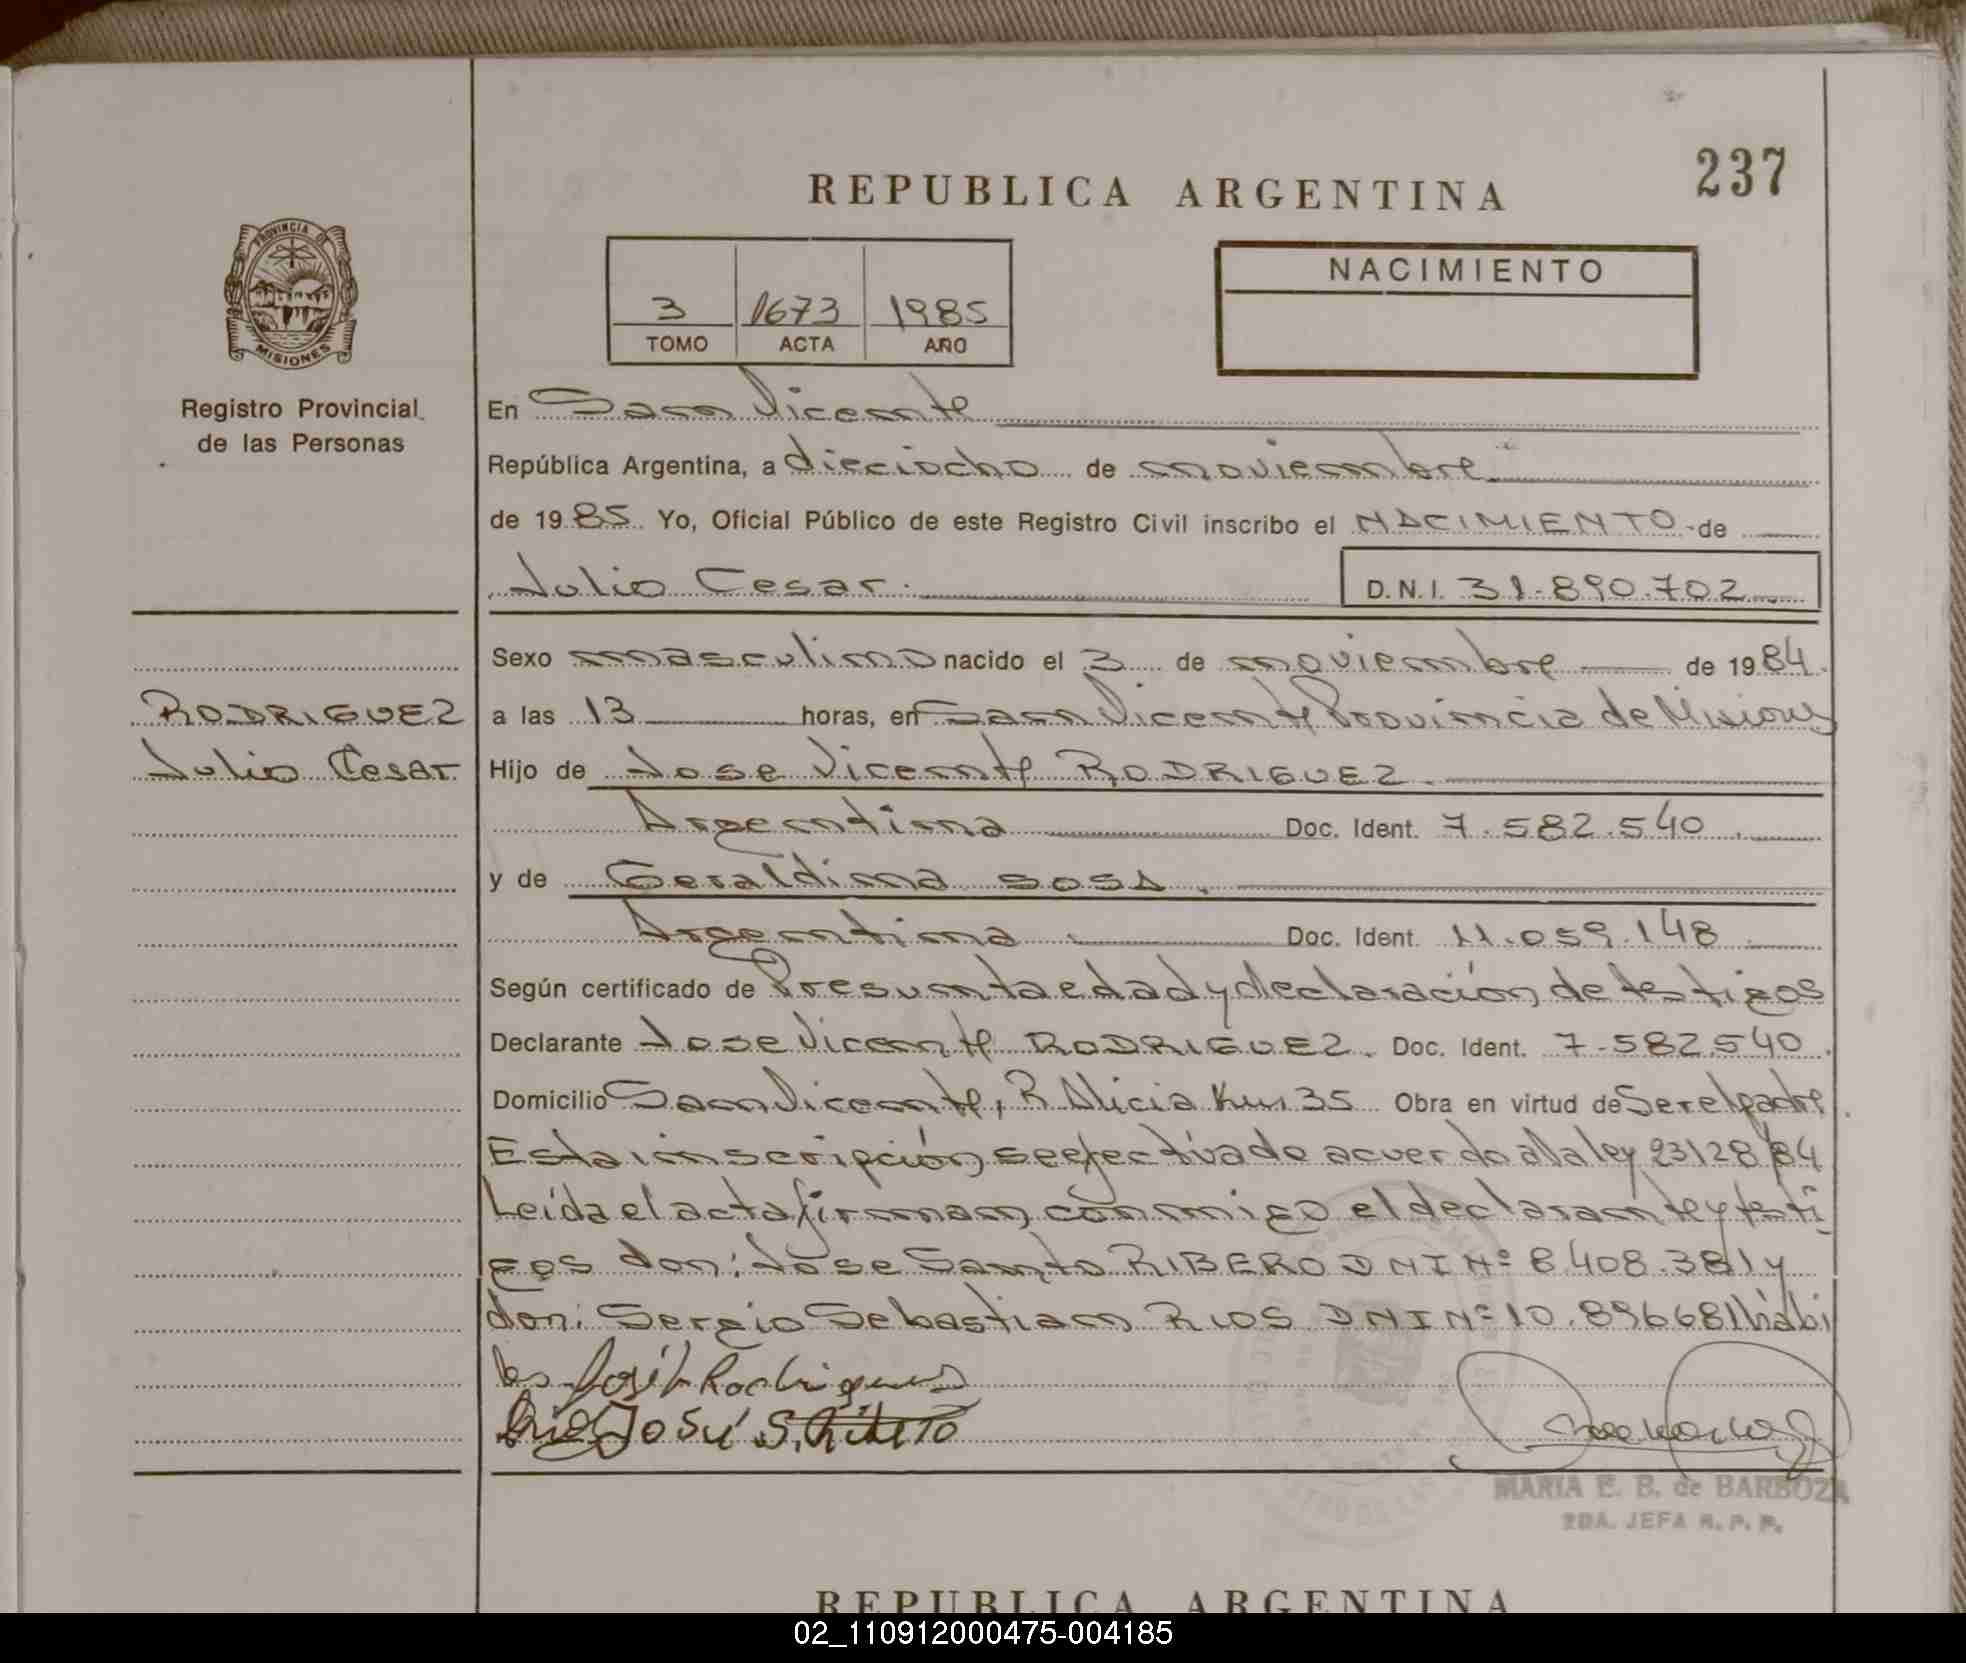 237
REPUBLICA ARGENTINA
PROVINCIA DE
MISIONES
Registro Provincial
de las Personas
3 1673 1985
TOMO ACTA AÑO
NACIMIENTO
En San Vicente
República Argentina, a dieciocho de noviembre
de 1985 Yo, Oficial Público de este Registro Civil inscribo el NACIMIENTO de
Julio Cesar D.N.I. 31.890.702
Sexo masculino nacido el 3 de noviembre de 1984
RODRIGUEZ
Julio Cesar
a las 13 horas, en San Vicente Provincia de Misiones
Hijo de Jose Vicente RODRIGUEZ
Argentina Doc. Ident. 7.582.540
y de Geraldina SOSA
Argentina Doc. Ident. 11.059.148
Según certificado de Presunta edad y declaración de testigos
Declarante Jose Vicente RODRIGUEZ. Doc. Ident. 7.582.540
Domicilio San Vicente, R. Alicia Km 35 Obra en virtud de Ser el padre
Esta inscripción se efectiva de acuerdo a la ley 23128/84
Leída el acta firman conmigo el declarante y testi
gos don: Jose Santo RIBERO DNI Nº 8.408.381 y
don: Sergio Sebastian RIOS DNI Nº 10.896681 hábi
les
MARIA E. B. de BARBOZA
2DA. JEFA R. P. P.
REPUBLICA ARGENTINA
02_110912000475-004185